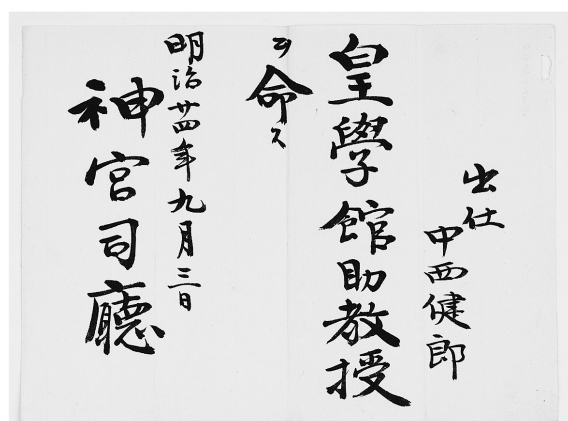 出仕
中西健郎
皇學館助教授
ヲ命ス
明治廿四年九月三日
神宮司廳